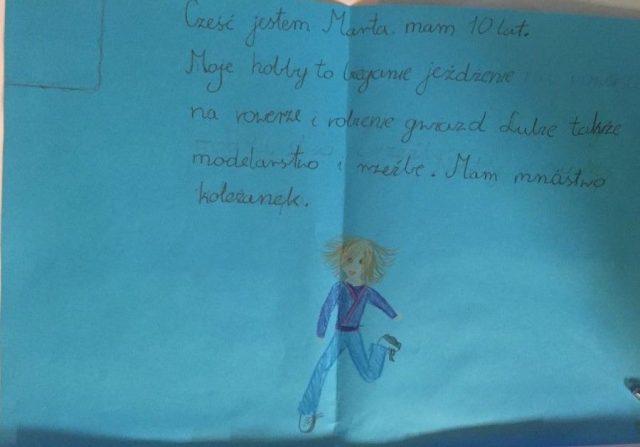 Cześć jestem Marta. mam 10 lat.
Moje hobby to bieganie jeżdżenie
na rowerze i robienie gwiazd Lubię także
modelarstwo i rzeźbę. Mam mnóstwo
koleżanek.